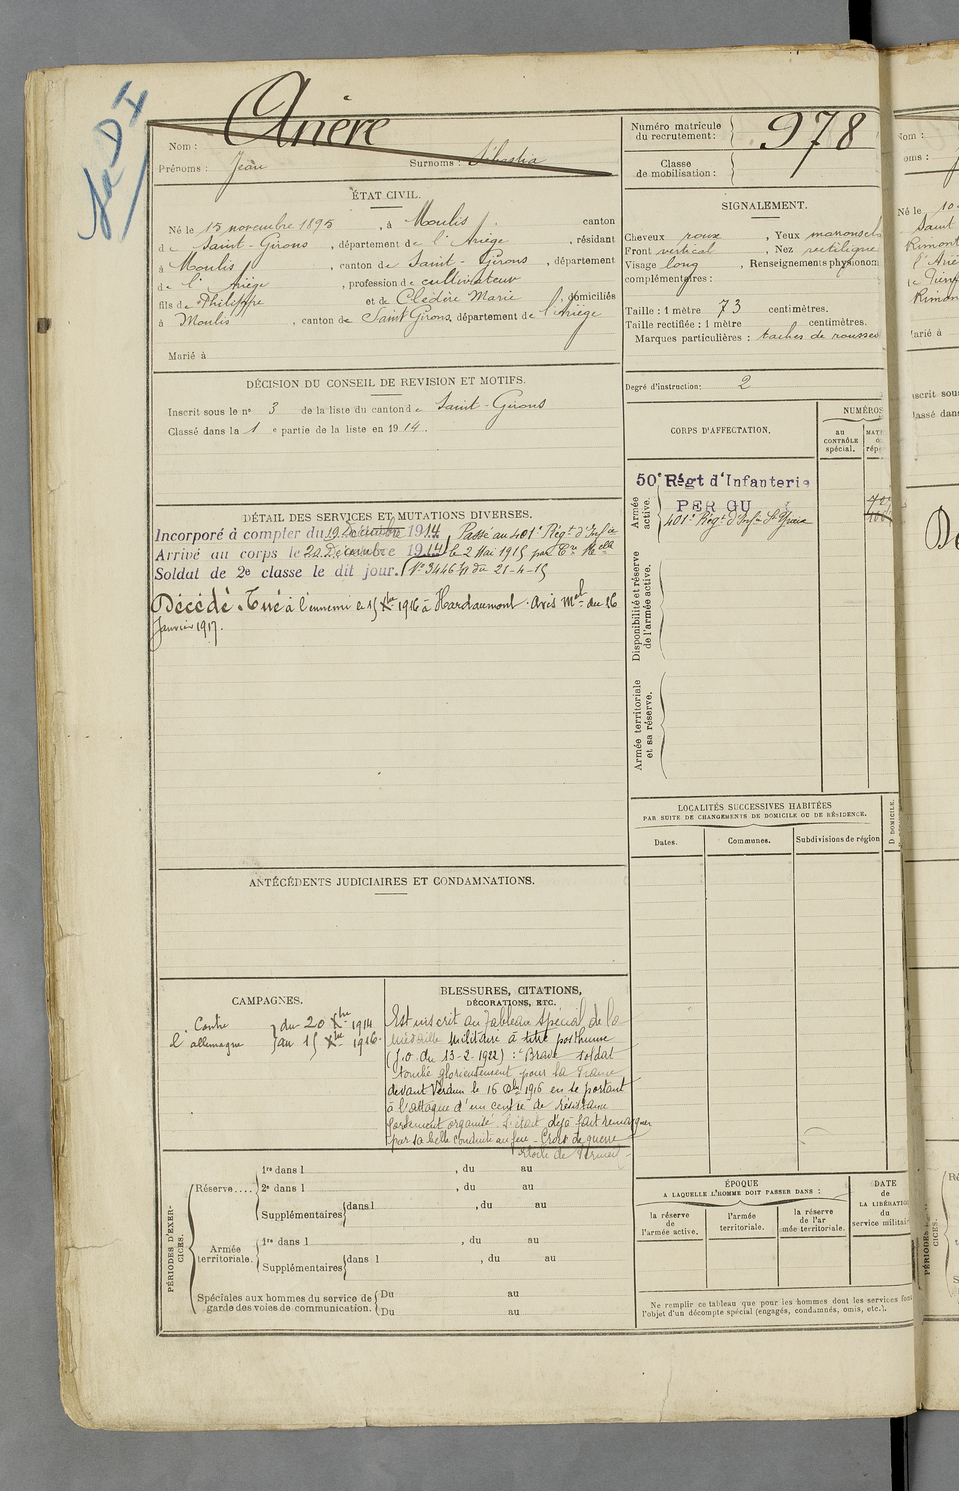 Anère
Nom :
Prénoms : Jean Surnoms :
Numéro matricule
du recrutement : 978
Classe
de mobilisation :
ÉTAT CIVIL.
Né le 15 novembre 1895, à Moulis, canton
de Saint-Girons, département de l'Ariège, résidant
à Moulis, canton de Saint-Girons, département
de l'Ariège, profession de cultivateur
fils de Philippe et de Clédère Marie, domiciliés
à Moulis, canton de Saint Girons, département de l'Ariège
Marié à
SIGNALEMENT.
Cheveux roux, Yeux marons
Front vertical, Nez rectiligne
Visage long, Renseignements physionom
complémentaires :
Taille : 1 mètre 73 centimètres.
Taille rectifiée : 1 mètre centimètres.
Marques particulières : taches de rousseur
Degré d'instruction: 2
DÉCISION DU CONSEIL DE REVISION ET MOTIFS.
Inscrit sous le n° 3 de la liste du canton de Saint-Girons
Classé dans la 1 e partie de la liste en 1914.
CORPS D'AFFECTATION.
NUMÉROS
au
CONTRÔLE
spécial.
50e Régt d'Infanterie
PERGU
401e Régt d'Infie St Yrieix
Armée
active.
Disponibilité et réserve
de l'armée active.
Armée territoriale
et sa réserve.
DÉTAIL DES SERVICES ET MUTATIONS DIVERSES.
Incorporé à compter du 19 Décembre 1914. Passé au 401e Régt d'Infie
Arrivé au corps le 20 Décembre 1914 le 2 Mai 1915 par Con Mlle
Soldat de 2e classe le dit jour. No 3446 du 21-4-15
Décédé. Tué à l'ennemi le 15 Xbre 1916 à Hardaumont. Avis Mel du 16
Janvier 1917.
LOCALITÉS SUCCESSIVES HABITÉES
PAR SUITE DE CHANGEMENTS DE DOMICILE OU DE RÉSIDENCE.
Dates. Communes. Subdivisions de région
D DOMICILE.
ANTÉCÉDENTS JUDICIAIRES ET CONDAMNATIONS.
CAMPAGNES.
Contre du 20 Xbre 1914
l'allemagne au 15 Xbre 1916.
BLESSURES, CITATIONS,
DÉCORATIONS, ETC.
Est inscrit au Tableau spécial de la
médaille Militaire à titre posthume
(J.O. du 13-2-1922) : "Brave soldat
tombé glorieusement pour la France
devant Verdun le 16 Xbre 1916 en se portant
à l'attaque d'un centre de résistance
fortement organisé. S'était déjà fait remarquer
par sa belle conduite au feu - Croix de guerre
étoile de Vermeil -
PÉRIODES D'EXER-
CICES.
Réserve....
1re dans l , du au
2e dans l , du au
Supplémentaires dans l , du au
Armée
territoriale.
1re dans l , du au
Supplémentaires dans l , du au
Spéciales aux hommes du service de
garde des voies de communication.
Du au
Du au
ÉPOQUE
A LAQUELLE L'HOMME DOIT PASSER DANS :
la réserve
de
l'armée active.
l'armée
territoriale.
la réserve
de l'ar
mée territoriale.
DATE
de
LA LIBÉRATION
du
service militaire
Ne remplir ce tableau que pour les hommes dont les services font
l'objet d'un décompte spécial (engagés, condamnés, omis, etc.).